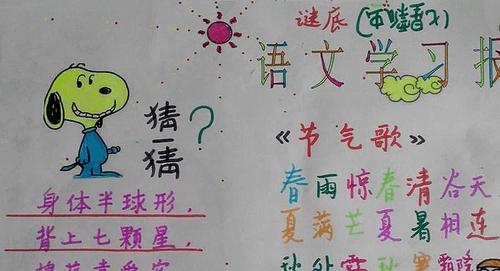 谜底
语文学习报
猜一猜?
身体半球形,
背上七颗星,
《节气歌》
春雨惊春清谷天
夏满芒夏暑相连